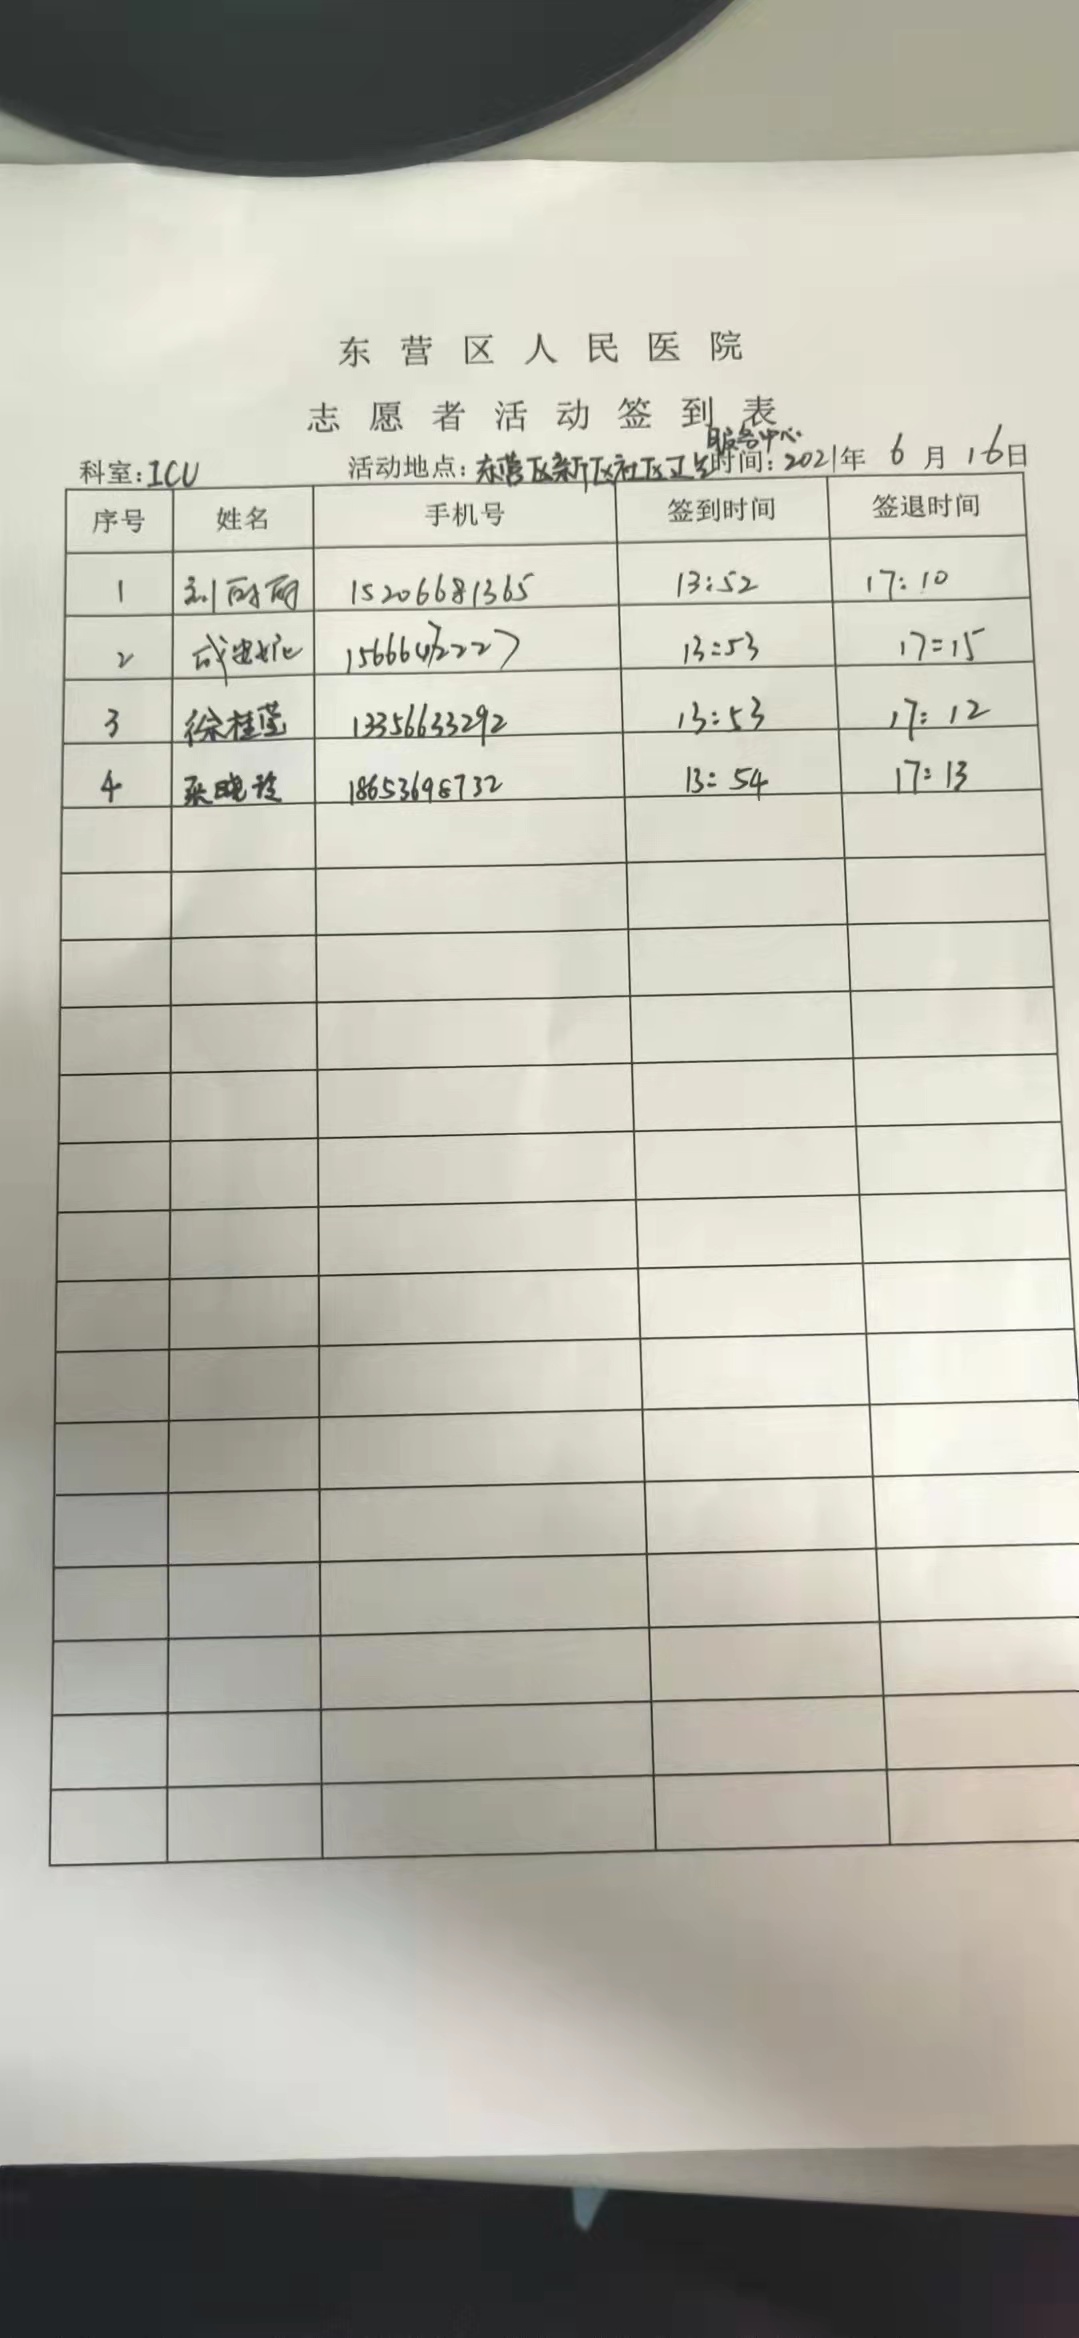 东营区人民医院
志愿者活动签到表
科室:ICU 活动地点:东营区新区社区卫生服务中心 时间:2021年6月16日
序号 姓名 手机号 签到时间 签退时间
1 刘丽丽 15206681365 13:52 17:10
2 1566642227 13:53 17:15
3 徐桂莹 13356633292 13:53 17:12
4 晓玲 18653698732 13:54 17:13